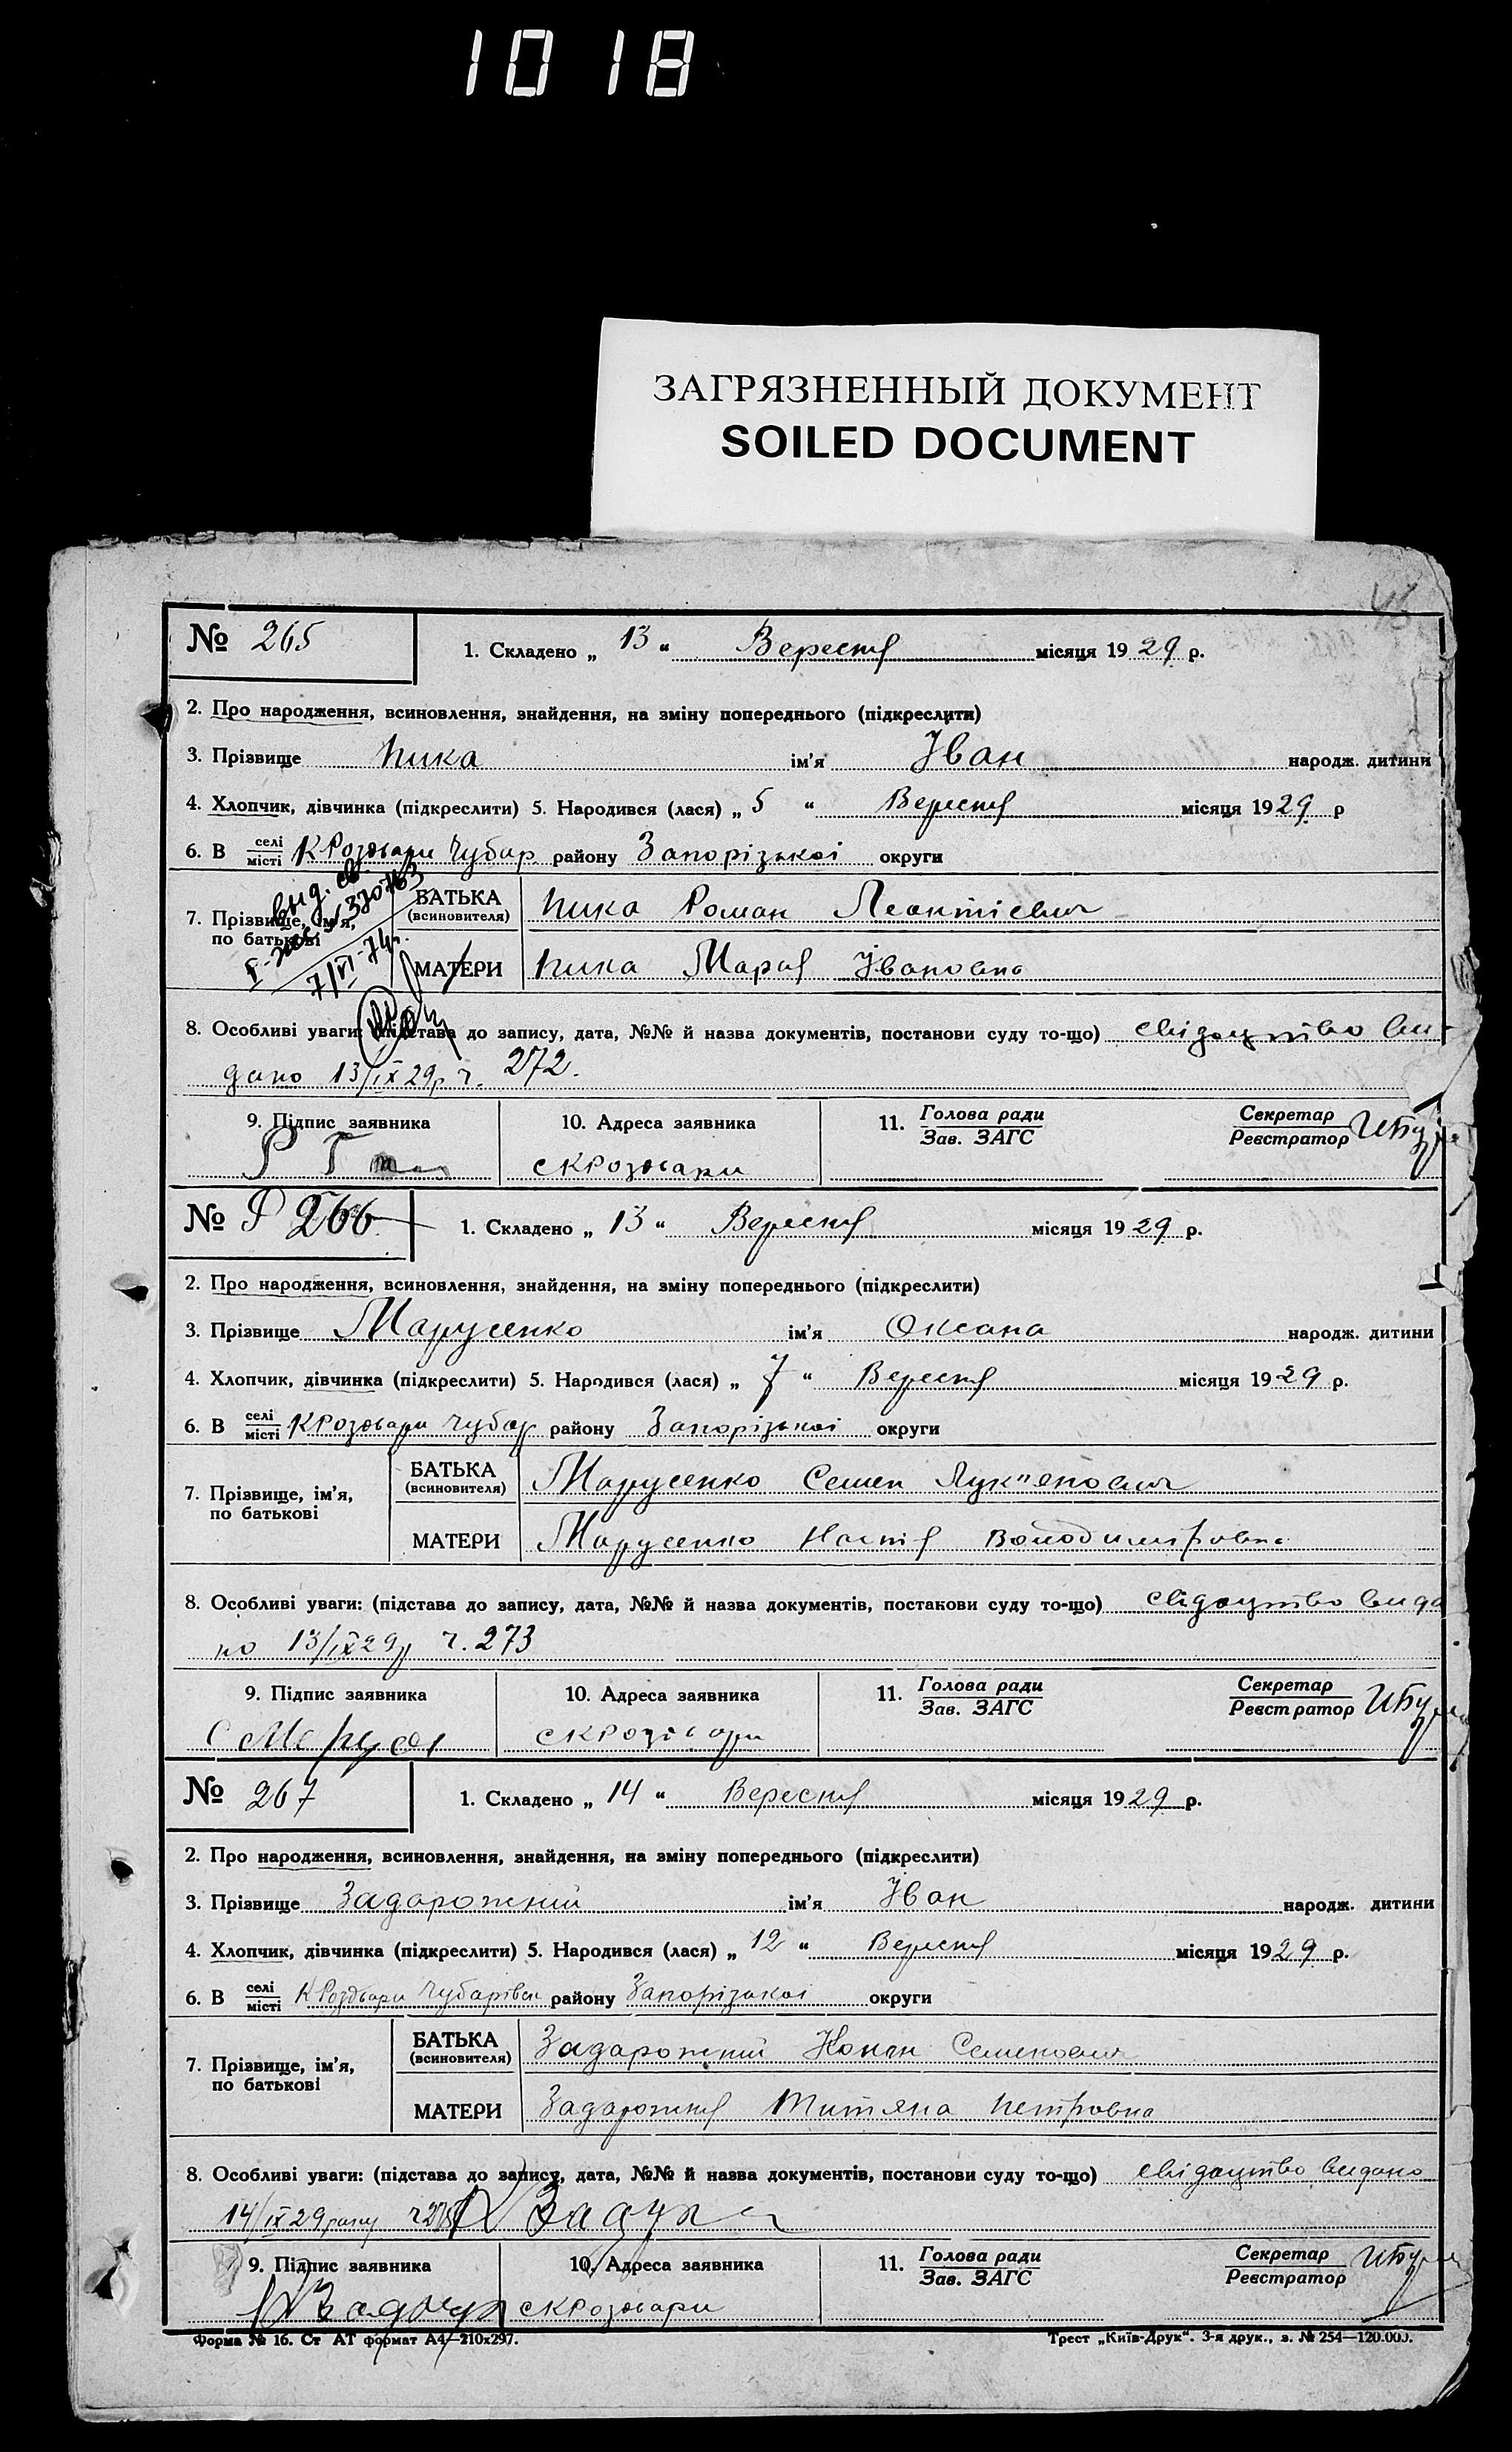 1018
ЗАГРЯЗНЕННЫЙ ДОКУМЕНТ
SOILED DOCUMENT
№ 265
1. Складено „ 13 “ Вересня місяця 1929 р.
2. Про народження, всиновлення, знайдення, на зміну попереднього (підкреслити)
3. Прізвище Пика ім'я Іван народж. дитини
4. Хлопчик, дівчинка (підкреслити) 5. Народився (лася) „ 5 “ Вересня місяця 1929 р
6. В селі місті К Роздори Чубар району Запорізької округи
выд. св.
7/VI-74г.
7. Прізвище, ім'я, по батькові
БАТЬКА (всиновителя) Пика Роман Леонтієвич
МАТЕРИ Пика Мария Івановна
8. Особливі уваги: (підстава до запису, дата, №№ й назва документів, постанови суду то-що) свідоцтво ви-
дано 13/IX 29р ч. 272.
9. Підпис заявника 10. Адреса заявника 11. Голова ради Зав. ЗАГС Секретар Реєстратор
с К Роздори
№ 266
1. Складено „ 13 “ Вересня місяця 1929 р.
2. Про народження, всиновлення, знайдення, на зміну попереднього (підкреслити)
3. Прізвище Марусенко ім'я Оксана народж. дитини
4. Хлопчик, дівчинка (підкреслити) 5. Народився (лася) „ 7 “ Вересня місяця 1929 р.
6. В селі місті К Роздори Чубар району Запорізької округи
7. Прізвище, ім'я, по батькові
БАТЬКА (всиновителя) Марусенко Семен Лук"янович
МАТЕРИ Марусенко Настя Володимировна
8. Особливі уваги: (підстава до запису, дата, №№ й назва документів, постанови суду то-що) свідоцтво вида
но 13/IX 29р ч. 273
9. Підпис заявника 10. Адреса заявника 11. Голова ради Зав. ЗАГС Секретар Реєстратор
с К Роздори
№ 267
1. Складено „ 14 “ Вересня місяця 1929 р.
2. Про народження, всиновлення, знайдення, на зміну попереднього (підкреслити)
3. Прізвище Задорожній ім'я Іван народж. дитини
4. Хлопчик, дівчинка (підкреслити) 5. Народився (лася) „ 12 “ Вересня місяця 1929 р.
6. В селі місті К Роздори Чубарівськ району Запорізької округи
7. Прізвище, ім'я, по батькові
БАТЬКА (всиновителя) Задорожній Конон Семенович
МАТЕРИ Задорожня Титяна Петровна
8. Особливі уваги: (підстава до запису, дата, №№ й назва документів, постанови суду то-що) свідоцтво видано
14/IX 29 року
9. Підпис заявника 10. Адреса заявника 11. Голова ради Зав. ЗАГС Секретар Реєстратор
с К Роздори
Форма № 16. Ст АТ формат А4—210х297. Трест „Київ-Друк“. 3-я друк., з. № 254—120.000.